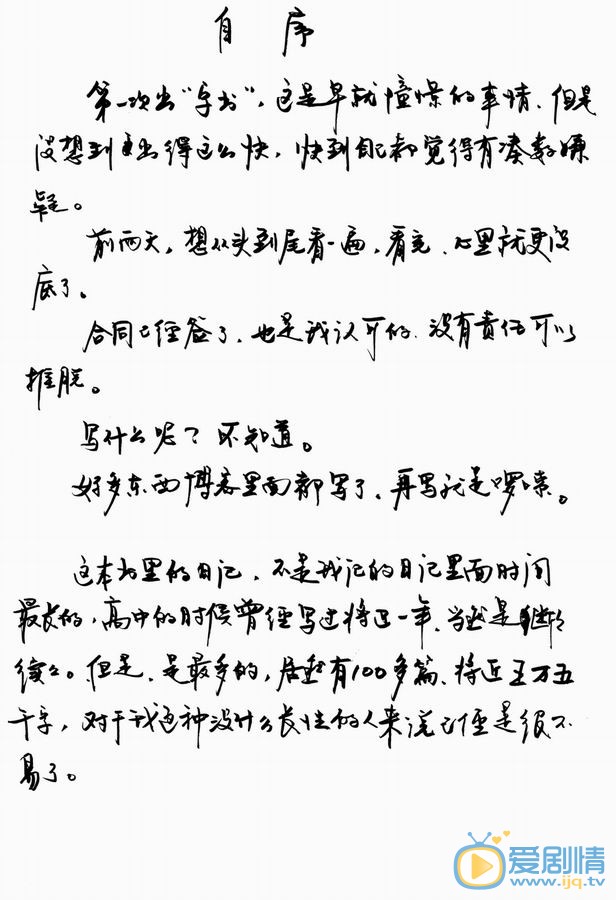 自 序
第一次出“字书”，这是早就憧憬的事情、但是
没想到会出得这么快，快到自己都觉得有凑数嫌
疑。
前两天，想从头到尾看一遍，看完、心里就更没
底了。
合同已经签了、也是我认可的、没有责任可以
推脱。
写什么呢？不知道。
好多东西博客里面都写了、再写就是啰嗦。
这本书里的日记，不是我记的日记里面时间
最长的，高中的时候曾经写过将近一年、当然是断断
续续。但是、是最多的，居然有100多篇、将近五万五
千字，对于我这种没什么长性的人来说已经是很不
易了。
爱剧情
www.ijq.tv